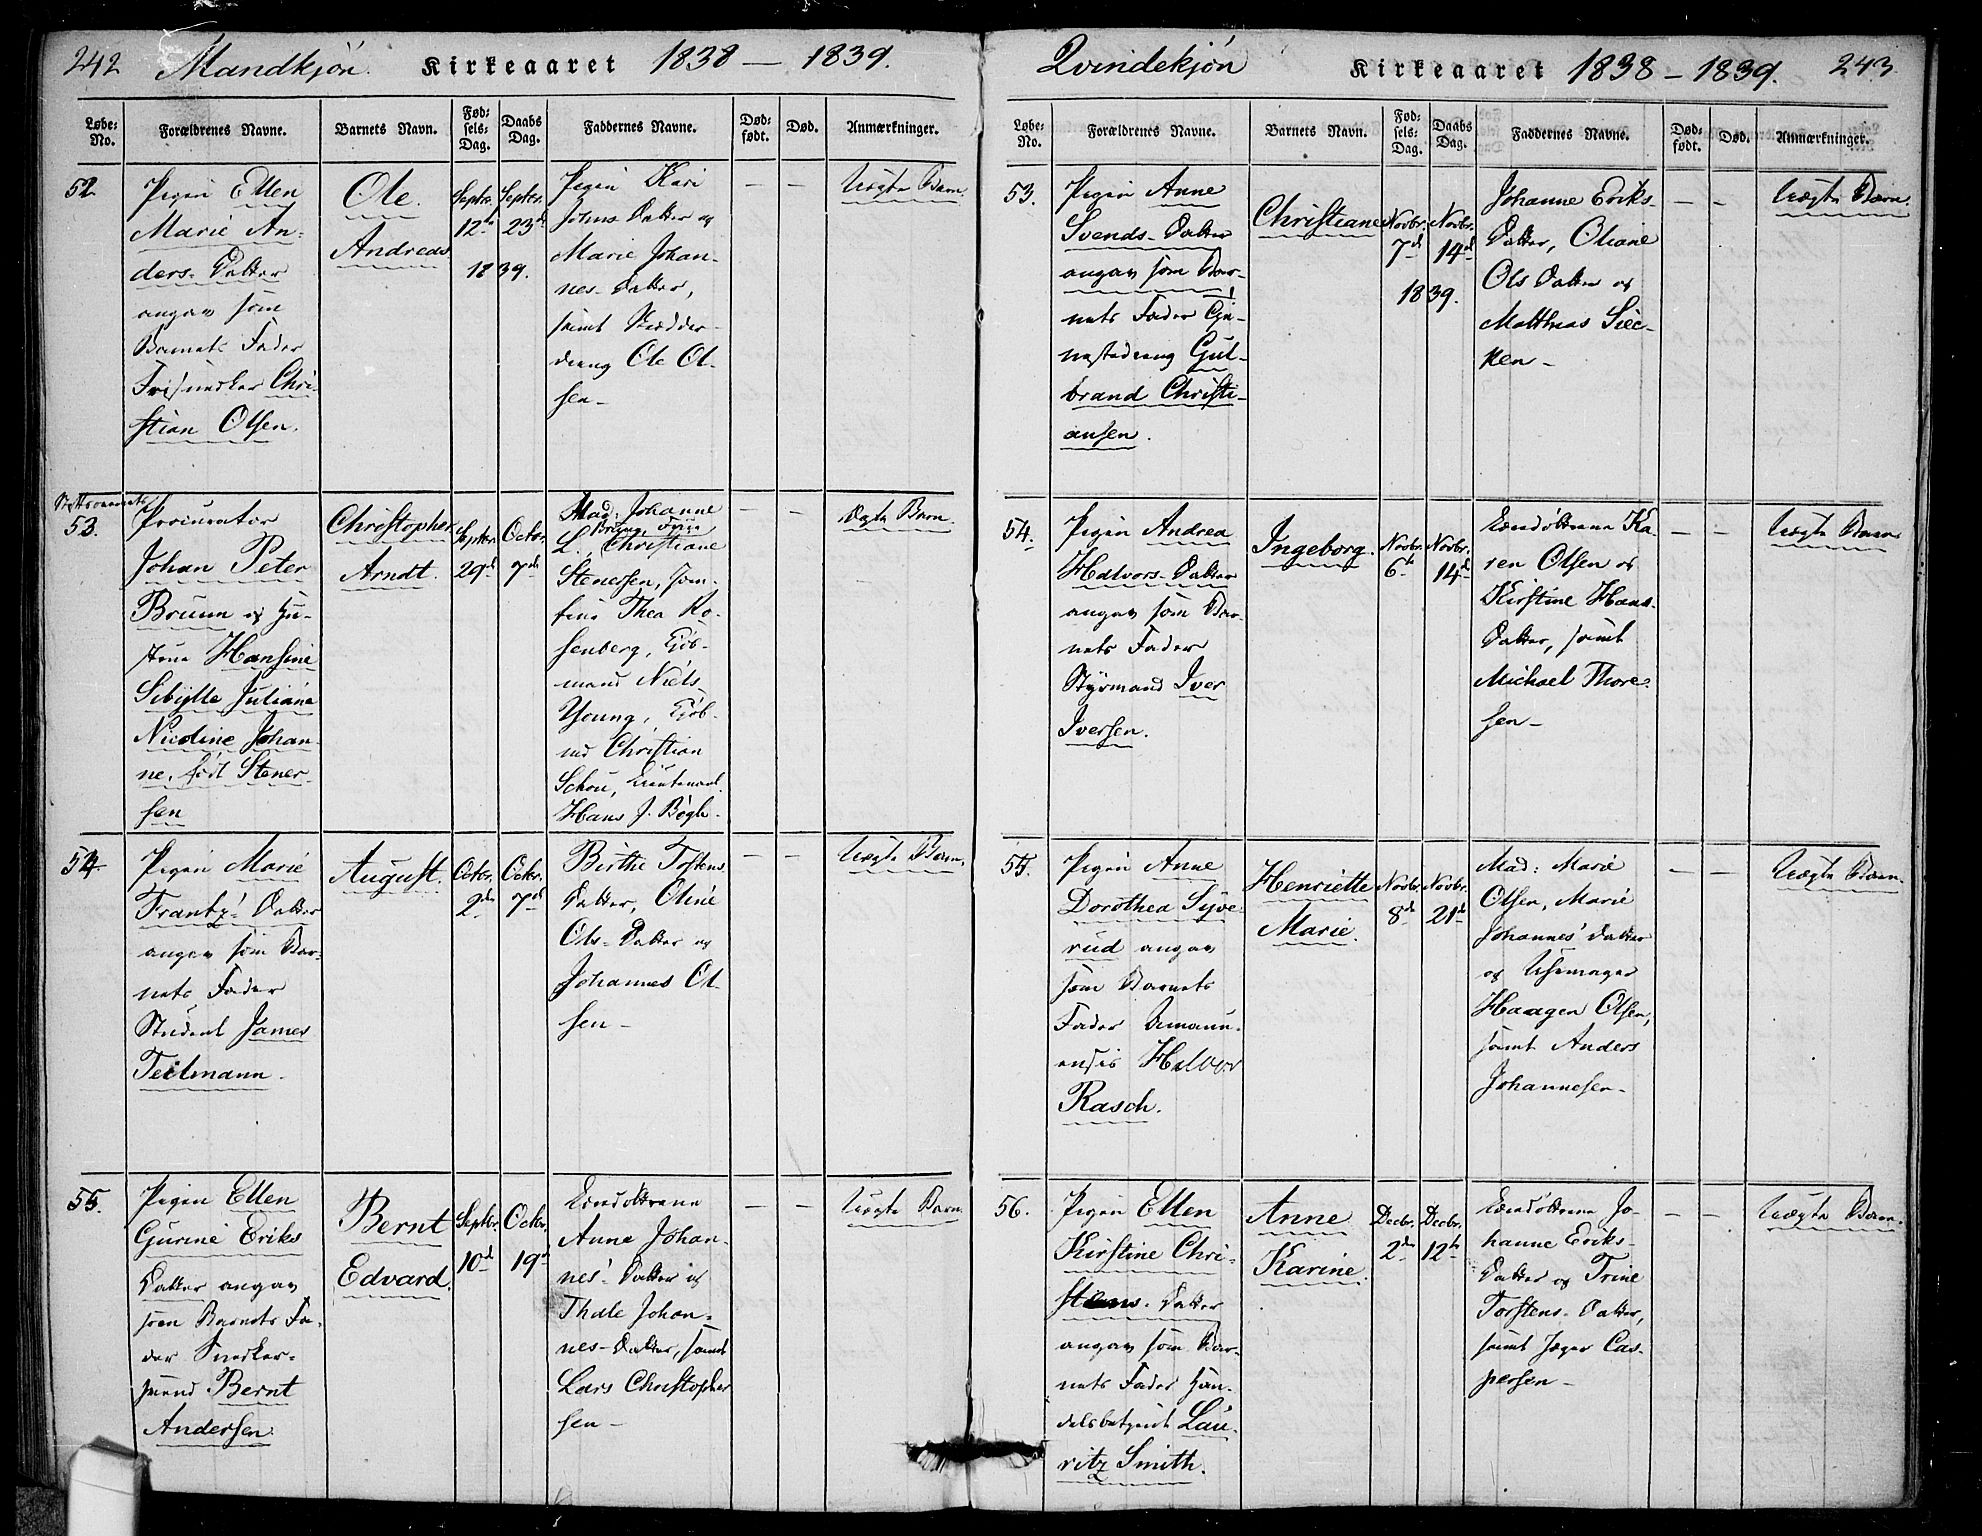 242 Mandkjön. Kirkeaaret 1838 — 1839.
Løbe-No. Forældrenes Navne. Barnets Navn. Fødsels-Dag. Daabs Dag. Faddernes Navne. Dødfødt. Død. Anmærkninger.
52.
Pigen Ellen
Marie An-
ders-Datter
angav som
Barnets Fader
Snedker Chri-
stian Olsen.
Ole
Andreas
Septbr. 12te
Septbr. 23de
1839.
Pigen Kari
Johns Datter og
Marie Johan-
nes-Datter,
samt
Ole Ol-
sen –
— —
Uægte Barn.
53.
Procurator
Johan Peter
Bruun og Hu-
strue Hansine
Sibylle Juliane
Nicoline Johan-
ne, født Stener-
sen
Christopher
Arndt.
Septbr. 29de
Octbr. 7de
Mad: Johanne
L. Christiane
Stenersen, Jom-
frue Thea Ro-
senberg, Kjöb-
mand Niels
Young, Kjöb-
md Christian
Schou, Lieutenant
Hans J. Bögh.
— —
Ægte Barn.
54.
Pigen Marie
Frantz' Datter
angav som Bar-
nets Fader
Student James
Teilmann.
August.
Octbr. 2de
Octbr. 7de
Birthe Tostens
Datter, Oline
Ols-Datter og
Johannes Ol-
sen –
— —
Uægte Barn.
55.
Pigen Ellen
Gurine Eriks
Datter angav
som Barnets Fa-
der Snedker-
svend Bernt
Andersen
Bernt
Edvard.
Septbr. 10de
Octbr. 19de
Eiendöttrene
Anne Johan-
nes'-Datter og
Thale Johan-
nes-Datter, samt
Lars Christopher
sen –
— —
Uægte Barn.
Qvindekjön Kirkeaaret 1838 – 1839. 243.
Løbe-No. Forældrenes Navne. Barnets Navn. Fødsels-Dag. Daabs Dag. Faddernes Navne. Dødfødt. Død. Anmærkninger.
53.
Pigen Anne
Svends-Datter
angav som Bar-
nets Fader Tje-
nestedreng Gul-
brand Christi-
ansen.
Christiane
Novbr. 7de
Novbr. 14de
1839.
Johanne Eriks-
Datter, Oliane
Ols Datter og
Matthias Siec-
ken –
— —
Uægte Barn.
54.
Pigen Andrea
Halvors-Datter
angav som Bar-
nets Fader
Styrmand Iver
Iversen.
Ingeborg.
Novbr. 6te
Novbr. 14de
Eiendöttrene Ka-
ren Olsen og
Kirstine Hans-
Datter, samt
Michael Thore-
sen –
— —
Uægte Barn
55.
Pigen Anne
Dorothea Syve-
rud angav
som Barnets
Fader Amanu-
ensis Halvor
Rasch.
Henriette
Marie.
Novbr. 8de
Novbr. 21de
Mad: Marie
Olsen, Marie
Johannes' Datter
og Uhrmager
Haagen Olsen,
samt Anders
Johannesen –
— —
Uægte Barn.
56.
Pigen Ellen
Kirstine Chri-
stens-Datter
angav som Bar-
nets Fader Han-
delsbetjent Lau-
ritz Smith.
Anne
Karine.
Decbr. 2de
Decbr. 12te
Eiendöttrene Jo-
hanne Eriks-
Datter og Trine
Torstens-Datter,
samt Jæger Cas-
persen –
— —
Uægte Barn.